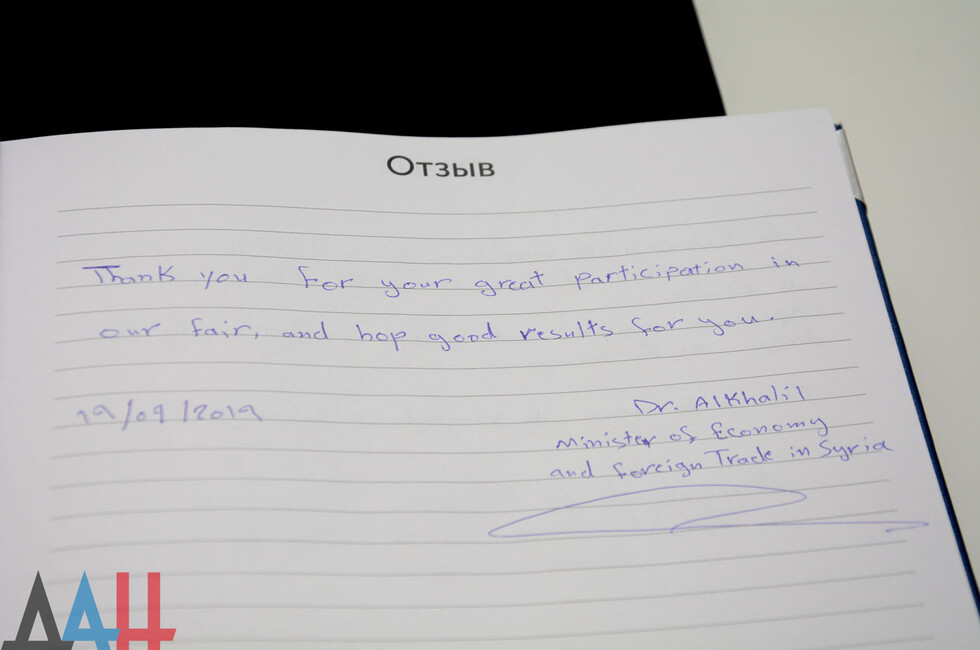 Отзыв
Thank you for your great participation in
our fair, and hop good results for you.
19/09/2019
Dr. AlKhalil
Minister of Economy
and Foreign Trade in Syria
ДАН